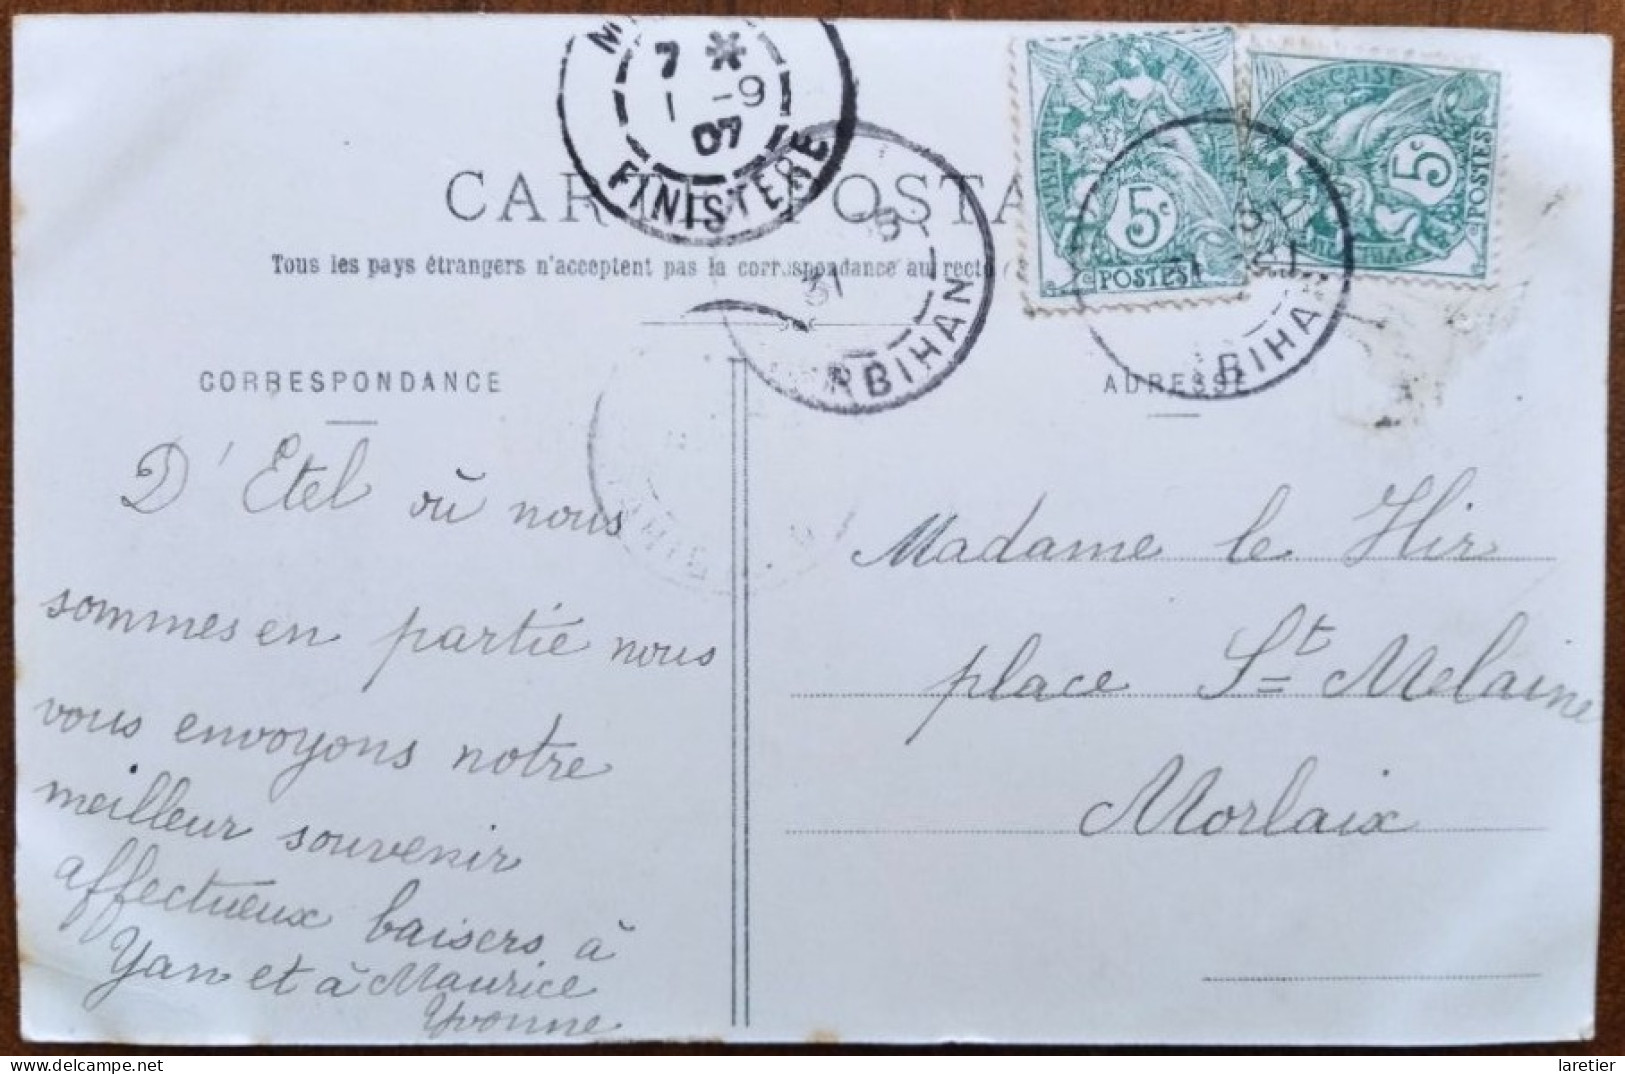 7 *
1 -9
07
FINISTÈRE
RÉPUBLIQUE FRANÇAISE
5c
POSTES
5c
POSTES
CARTE POSTALE
Tous les pays étrangers n'acceptent pas la correspondance au recto
31
BIHAN
BIHAN
CORRESPONDANCE
ADRESSE
D'Etel où nous
sommes en partie nous
vous envoyons notre
meilleur souvenir
affectueux baisers à
Yan et à Maurice
Yvonne
Madame le Hir
place St Melaine
Morlaix
laretier